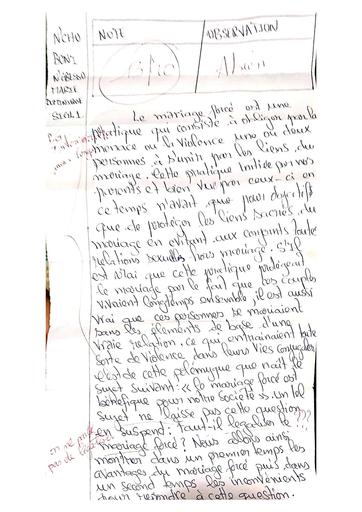 N'CHO
BONI
MARIE
SIGL1
NOTE
OBSERVATION
Le mariage forcé est une
pratique qui consiste à obliger par la
menace ou la violence une ou deux
personnes à s'unir par les liens du
mariage. Cette pratique par nos
parents et bien vue par ceux-ci en
ce temps n'avait que pour objectif
que de protéger les liens sacrés du
mariage en évitant aux conjoints toute
relations sexuelles hors mariage. S'il
est vrai que cette pratique protégeait
le mariage par le fait que les couples
vivaient longtemps ensemble, il est aussi
vrai que ces personnes se mariaient
sans les éléments de base d'une
vraie relation, ce qui entraînaient toute
sorte de violence dans leurs vies conjugales
c'est de cette polémique que naît le
sujet suivant: « le mariage forcé est
bénéfique pour notre société ». Un tel
sujet ne laisse pas cette question
en suspend: faut-il légaliser le ???
mariage forcé? Nous allons ainsi
montrer dans un premier temps les
avantages du mariage forcé puis dans
un second temps les inconvénients
pour répondre à cette question.
on ne parle
pas de